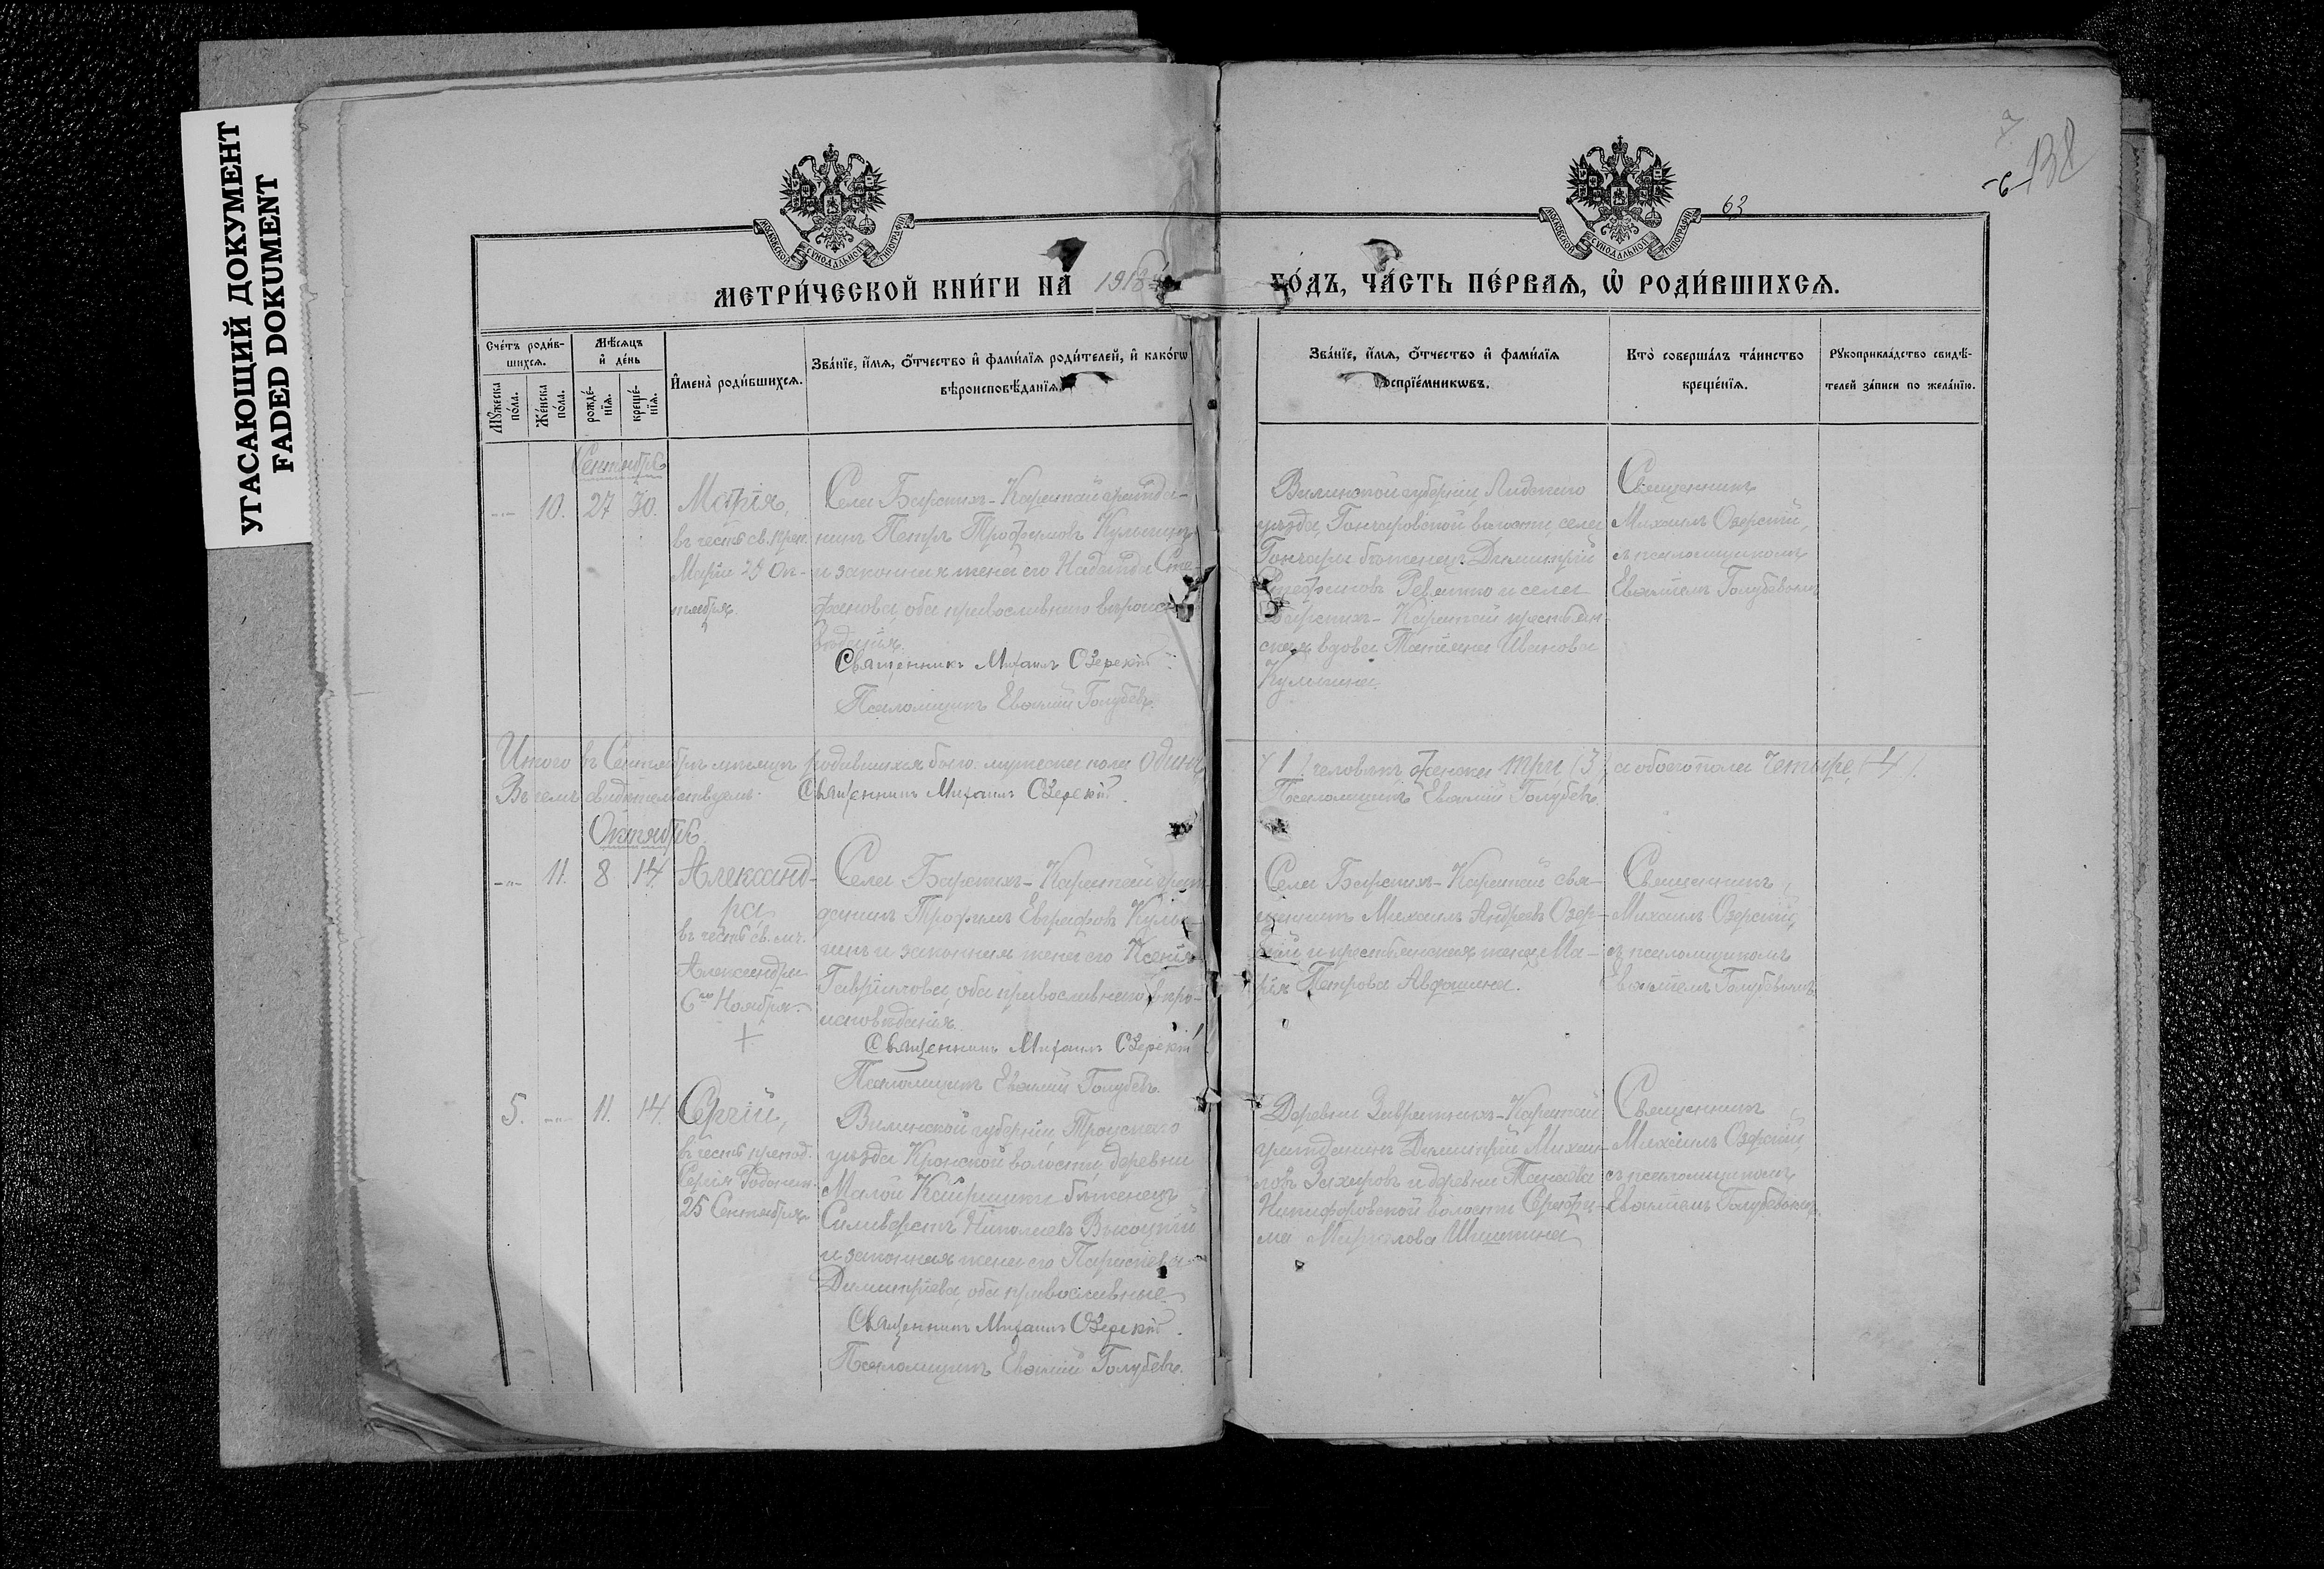 УГАСАЮЩИЙ ДОКУМЕНТ
FADED DOKUMENT
138
63
МОСКОВСКОЙ СѴНОДАЛЬНОЙ ТИПОГРАФІИ
МОСКОВСКОЙ СѴНОДАЛЬНОЙ ТИПОГРАФІИ
МЕТРИ́ЧЕСКОЙ КНИ́ГИ НА 1918
ГО́ДЪ, ЧА́СТЬ ПЕ́РВАЯ, Ѡ҆ РОДИ́ВШИХСЯ.
Сче́тъ роди́в-
шихся.
Мꙋжеска
по́ла.
Же́нска
по́ла.
Мѣ́сяцъ
и҆ де́нь
рожде́-
нїя.
креще́-
нїя.
И҆мена̀ роди́вшихся.
Зва́нїе, и҆́мя, ѻ҆́тчество и҆ фами́лїя роди́телей, и҆ како́гѡ
вѣроисповѣ́данїя.
Зва́нїе, и҆́мя, ѻ҆́тчество и҆ фами́лїя
воспрїе́мникѡвъ.
Кто̀ соверша́лъ та́инство
креще́нїя.
Рꙋкоприкла́дство свидѣ́-
телей за́писи по жела́нїю.
Сентябрь
10. 27 30.
Марія,
въ честь св. преп.
Маріи 29 Ок-
тября.
Села Барскихъ-Каратай гражда-
нинъ Петръ Трофимовъ Кулыгинъ
и законная жена его Надежда Сте-
фанова, оба православнаго вѣроиспо-
вѣданія.
Священникъ Михаилъ Озерскій
Псаломщикъ Евѳимій Голубевъ.
Виленской губерніи Лидскаго
уѣзда, Гончаровской волости, села
Гончары бѣженецъ Димитрій
Стефановъ и села
Барскихъ-Каратай крестьян-
ская вдова Татіана Иванова
Кулыгина.
Священникъ
Михаилъ Озерскій,
съ псаломщикомъ
Евѳиміемъ Голубевымъ
Итого въ Сентябрѣ мѣсяцѣ родившихся было: мужеска пола одинъ
/1/ человѣкъ женска три /3/, а обоего пола четыре /4/.
Въ чемъ свидѣтельствуемъ. Священникъ Михаилъ Озерскій.
Псаломщикъ Евѳимій Голубевъ.
Октябрь
11. 8 14.
Александ-
ра
въ честь св. мч.
Александры
6го Ноября.
Села Барскихъ-Каратай граж-
данинъ Трофимъ Евграфовъ Кулы-
гинъ и законная жена его Ксенія
Гавріилова, оба православнаго вѣро-
исповѣданія.
Священникъ Михаилъ Озерскій
Псаломщикъ Евѳимій Голубевъ.
Села Барскихъ-Каратай свя-
щенникъ Михаилъ Андреевъ Озер-
скій и крестьянская жена Ма-
рія Петрова Авдошина.
Священникъ
Михаилъ Озерскій,
съ псаломщикомъ
Евѳиміемъ Голубевымъ
5. 11. 14.
Сергій,
въ честь препод.
Сергія Радонеж.
25 Сентября.
Виленской губерніи, Троцкаго
уѣзда Кронской волости, деревни
Малой бѣженецъ
Сильверстъ Николаевъ Высоцкій
и законная жена его Параскева
Димитріева, оба православные
Священникъ Михаилъ Озерскій.
Псаломщикъ Евѳимій Голубевъ.
Деревни Заврашныхъ-Каратай
гражданинъ Димитрій Михаи-
ловъ Захаровъ и деревни Танаева
Никифоровской волости Серафи-
ма Шишкина
Священникъ
Михаилъ Озерскій,
съ псаломщикомъ
Евѳиміемъ Голубевымъ.